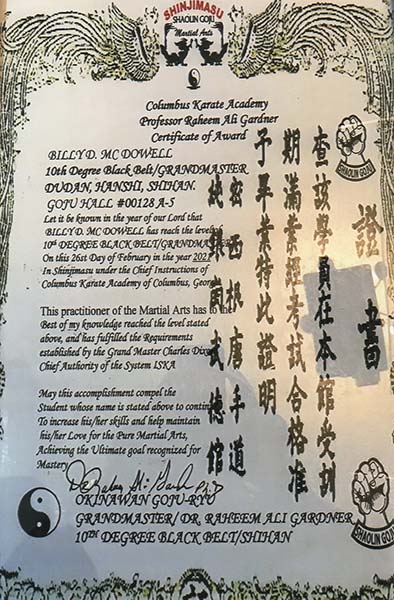 SHINJIMASU
SHAOLIN GOJU
Martial Arts
Columbus Karate Academy
Professor Raheem Ali Gardner
Certificate of Award
BILLY D. MC DOWELL
10th Degree Black Belt/GRANDMASTER
DUDAN, HANSHI, SHIHAN.
GOJU HALL #00128 A-5
Let it be known in the year of our Lord that
BILLY D. MC DOWELL has reach the level of
10TH DEGREE BLACK BELT/GRANDMASTER
On this 26st Day of February in the year 2021
In Shinjimasu under the Chief Instructions of
Columbus Karate Academy of Columbus, Georgia
This practitioner of the Martial Arts has to the
Best of my knowledge reached the level stated
above, and has fulfilled the Requirements
established by the Grand Master Charles
Chief Authority of the System ISKA
May this accomplishment compel the
Student whose name is stated above to continue
To increase his/her skills and help maintain
his/her Love for the Pure Martial Arts,
Achieving the Ultimate goal recognized for
Mastery
OKINAWAN GOJU-RYU
GRANDMASTER/ DR. RAHEEM ALI GARDNER
10TH DEGREE BLACK BELT/SHIHAN
證書
查該學員在本館受訓
期滿業經考試合格准
予畢業特此證明
密西根唐手道
武德館
SHAOLIN GOJU
SHAOLIN GOJU